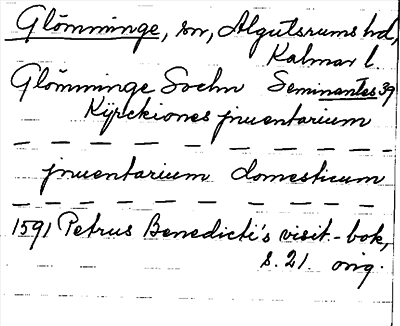 Glömminge, sn, Algutsrums hd,
Kalmar l.
Glömminge Sochn Seminantes 39
Kyrckiones jnuentarium
— — — — — — — — — —
jnuentarium domesticum
— — — — — — — — — —
1591 Petrus Benedicti's visit.-bok,
s. 21. orig.